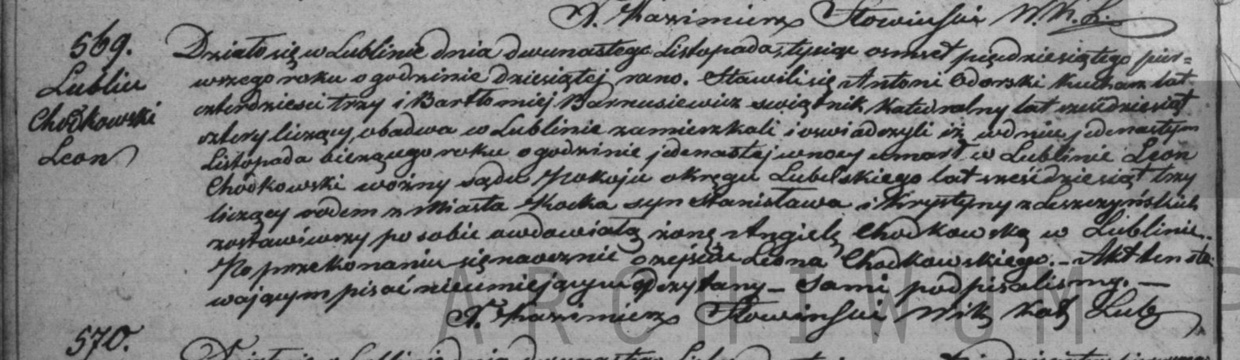 X. Kazimierz Słowiński W. K. L.
569.
Lublin
Chodkowski
Leon
Działo się w Lublinie dnia dwunastego Listopada tysiąc ośmset pięćdziesiątego pier=
wszego roku o godzinie dziesiątej rano. Stawili się Antoni Odorski Kucharz lat
czterdzieści trzy i Bartłomiej Barnusiewicz świątnik katedralny lat sześćdziesiąt
cztery liczący, obadwa w Lublinie zamieszkali i oświadczyli iż w dniu jedenastym
Listopada bieżącego roku o godzinie jedenastej w nocy umarł w Lublinie Leon
Chodkowski woźny sądu Pokoju okręgu Lubelskiego lat sześćdziesiąt trzy
liczący rodem z Miasta Kocka syn Stanisława i Krystyny z Leszczyńskich
zostawiwszy po sobie owdowiałą żonę Angielę Chodkowską w Lublinie.
Po przekonaniu się naocznie o zejściu Leona Chodkowskiego. – Akt ten sta=
wającym pisać nieumiejącym odczytany – sami podpisaliśmy. –
X. Kazimierz Słowiński Wik Kat Lub
ARCHIWUM P
570.
Działo się w Lublinie dnia